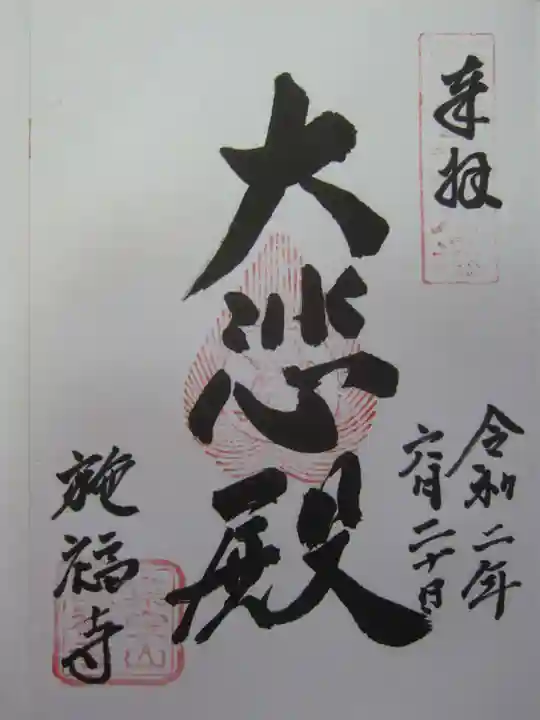 奉拝
令和二年
六月二十日
大悲殿
施福寺